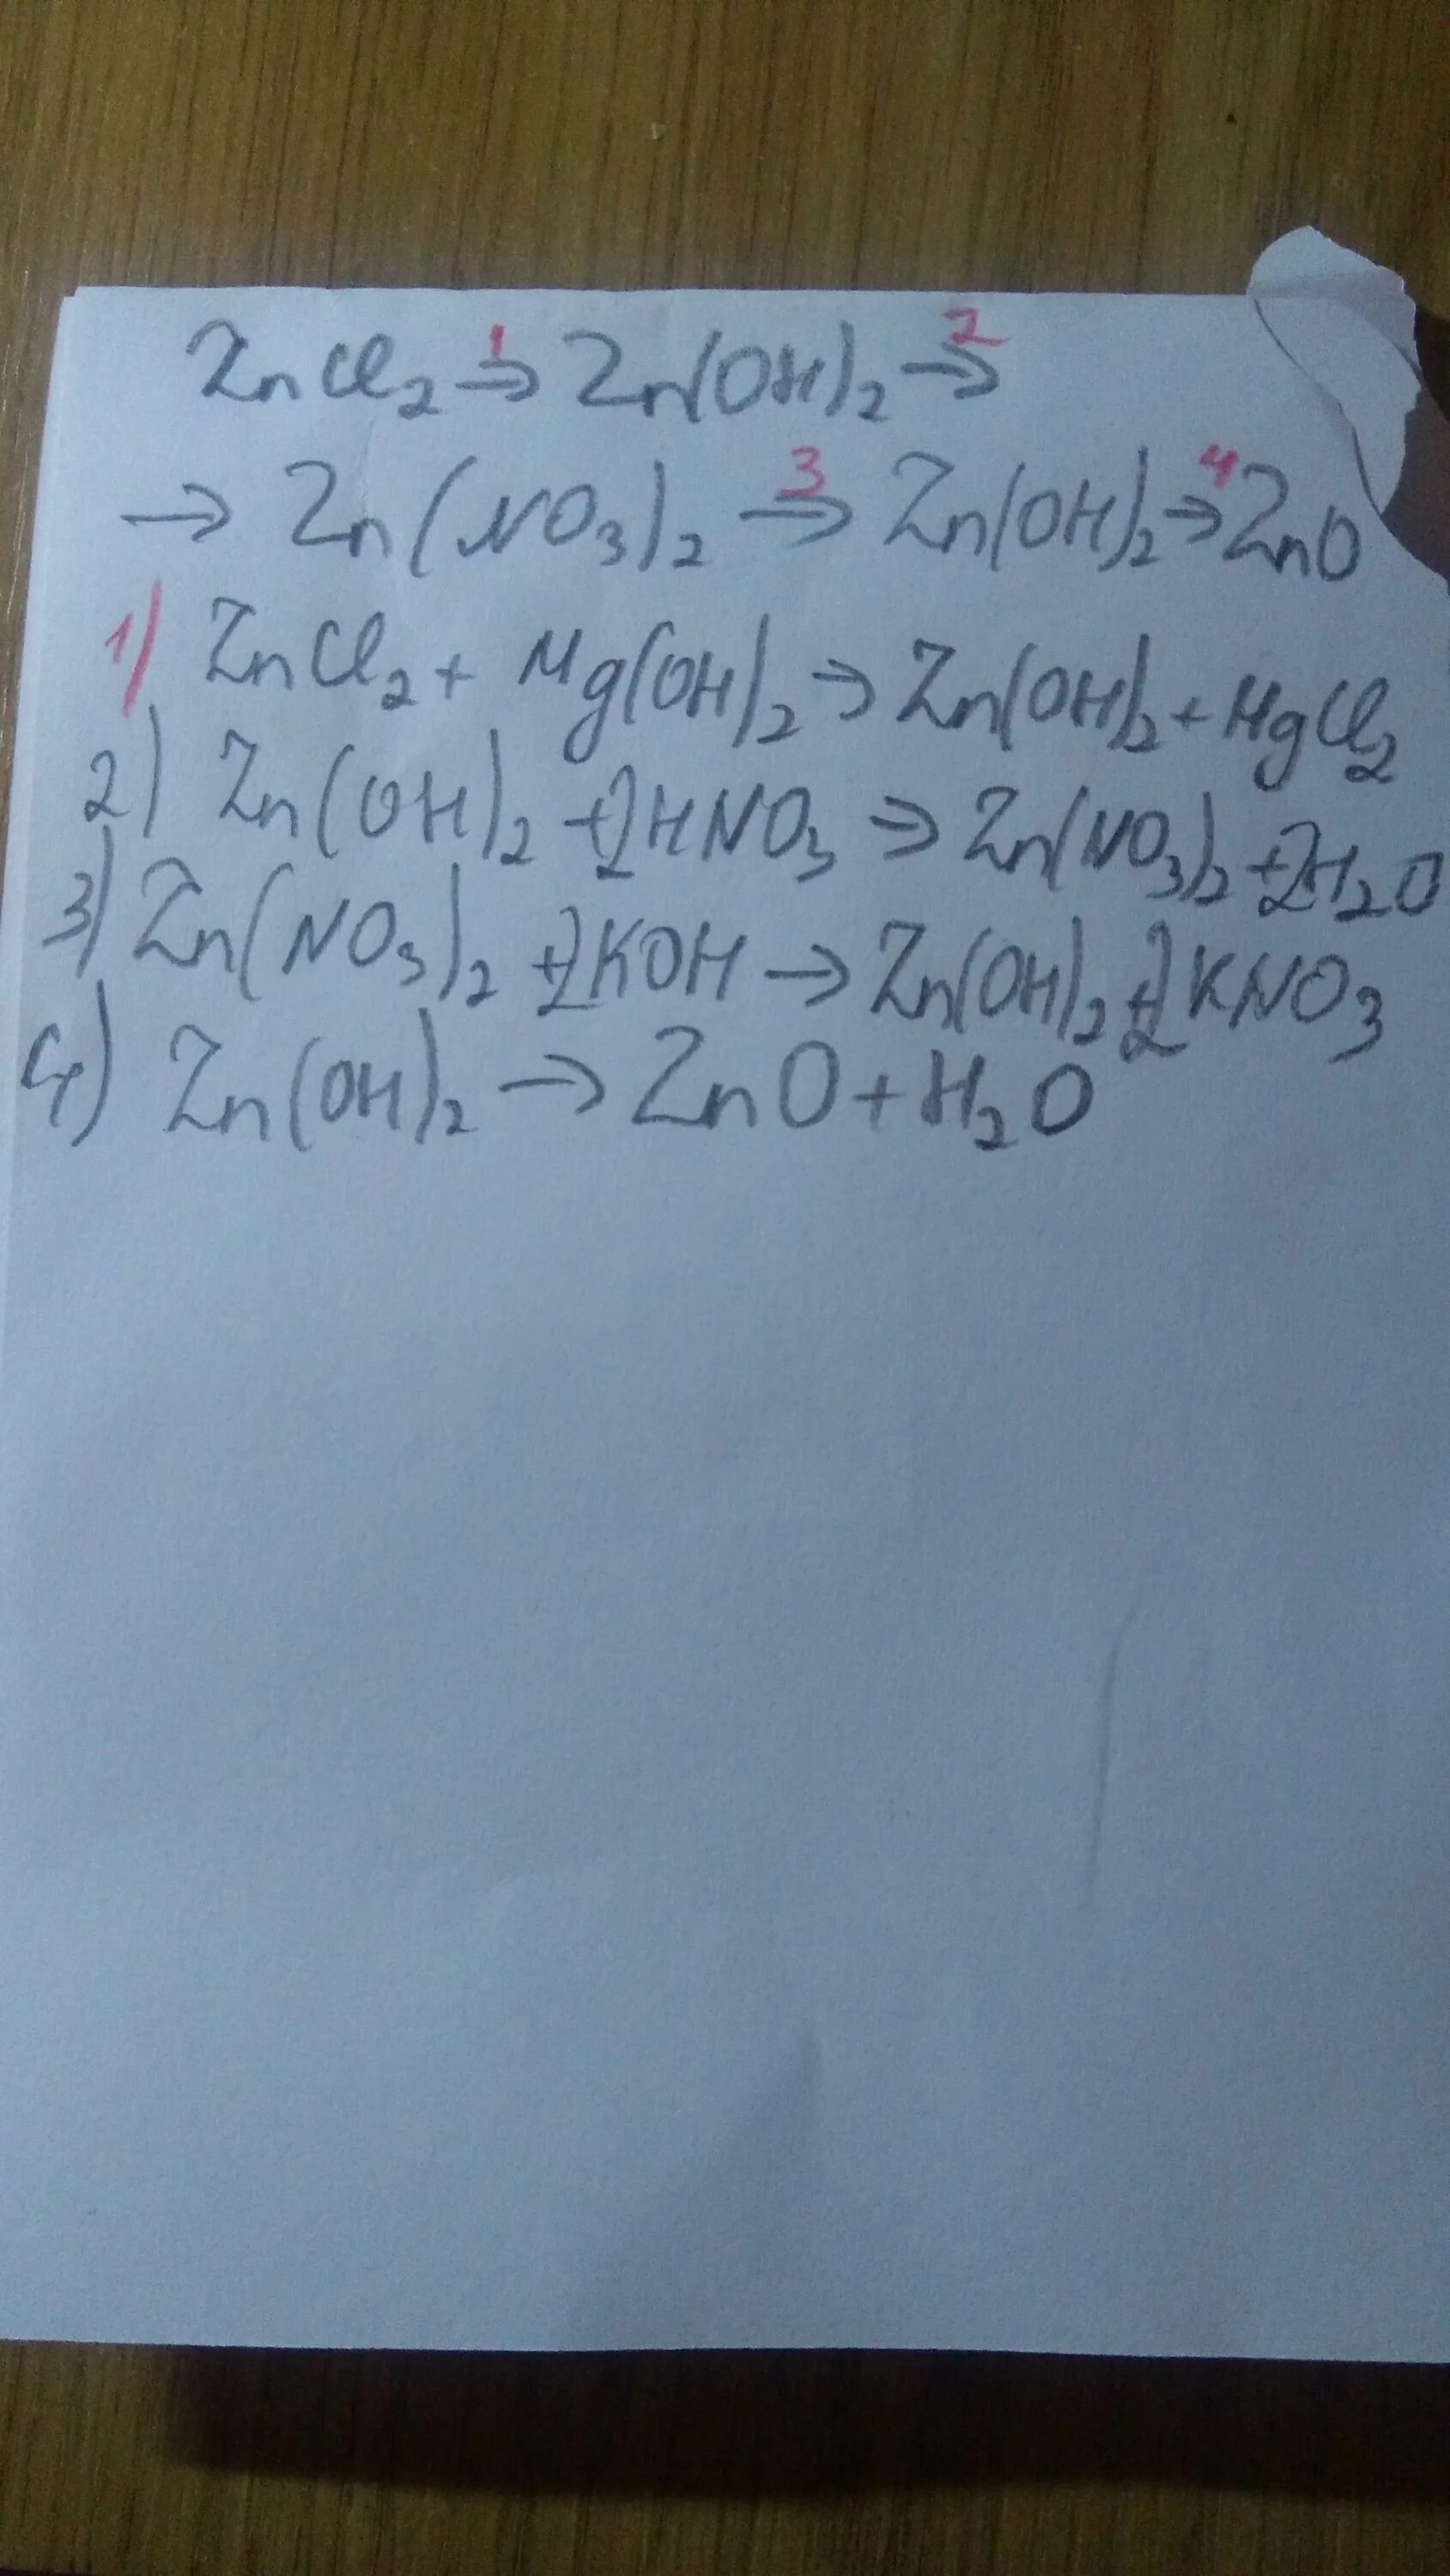 ZnCl₂ →¹ Zn(OH)₂ →²
→ Zn(NO₃)₂ →³ Zn(OH)₂ →⁴ ZnO
1) ZnCl₂ + Mg(OH)₂ → Zn(OH)₂ + MgCl₂
2) Zn(OH)₂ + 2HNO₃ → Zn(NO₃)₂ + 2H₂O
3) Zn(NO₃)₂ + 2KOH → Zn(OH)₂ + 2KNO₃
4) Zn(OH)₂ → ZnO + H₂O